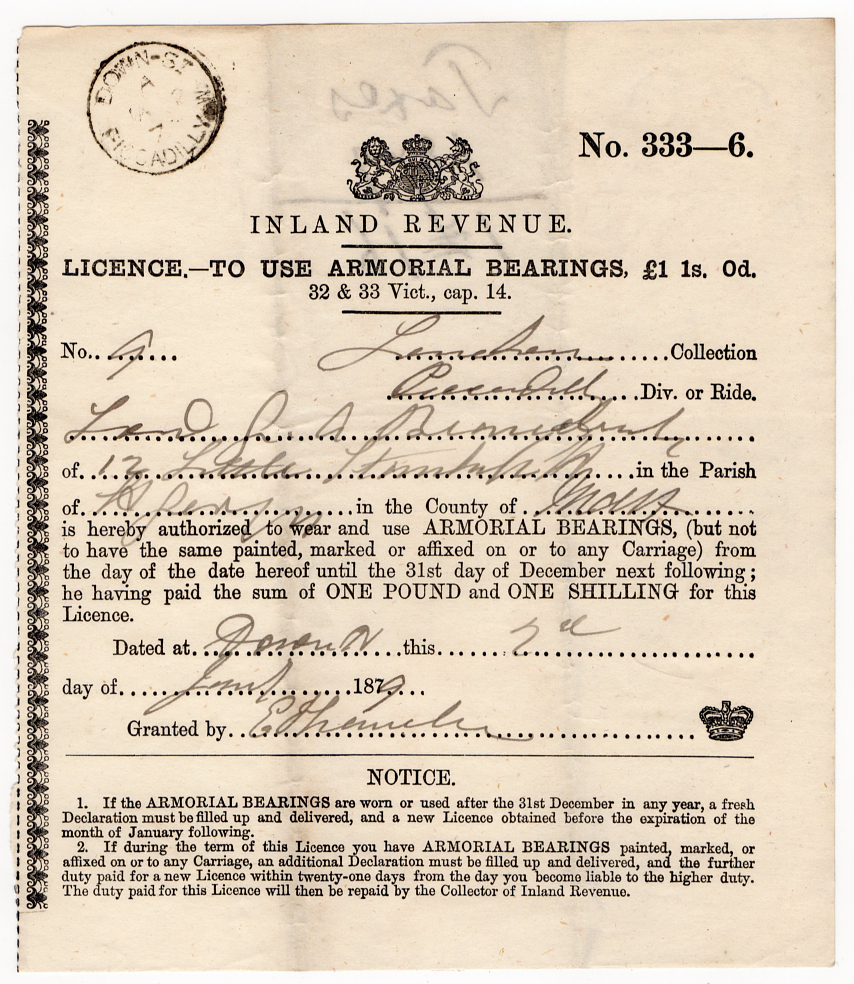 DOWN-ST. W.
PICCADILLY
Taxes
No. 333—6.
INLAND REVENUE.
LICENCE.—TO USE ARMORIAL BEARINGS, £1 1s. 0d.
32 & 33 Vict., cap. 14.
No. 9 London Collection
Piccadilly Div. or Ride.
Lord
of 12 Little Stanhope St in the Parish
of St George in the County of Middx
is hereby authorized to wear and use ARMORIAL BEARINGS, (but not
to have the same painted, marked or affixed on or to any Carriage) from
the day of the date hereof until the 31st day of December next following;
he having paid the sum of ONE POUND and ONE SHILLING for this
Licence.
Dated at Down St this 2nd
day of 1879
Granted by
NOTICE.
1. If the ARMORIAL BEARINGS are worn or used after the 31st December in any year, a fresh
Declaration must be filled up and delivered, and a new Licence obtained before the expiration of the
month of January following.
2. If during the term of this Licence you have ARMORIAL BEARINGS painted, marked, or
affixed on or to any Carriage, an additional Declaration must be filled up and delivered, and the further
duty paid for a new Licence within twenty-one days from the day you become liable to the higher duty.
The duty paid for this Licence will then be repaid by the Collector of Inland Revenue.